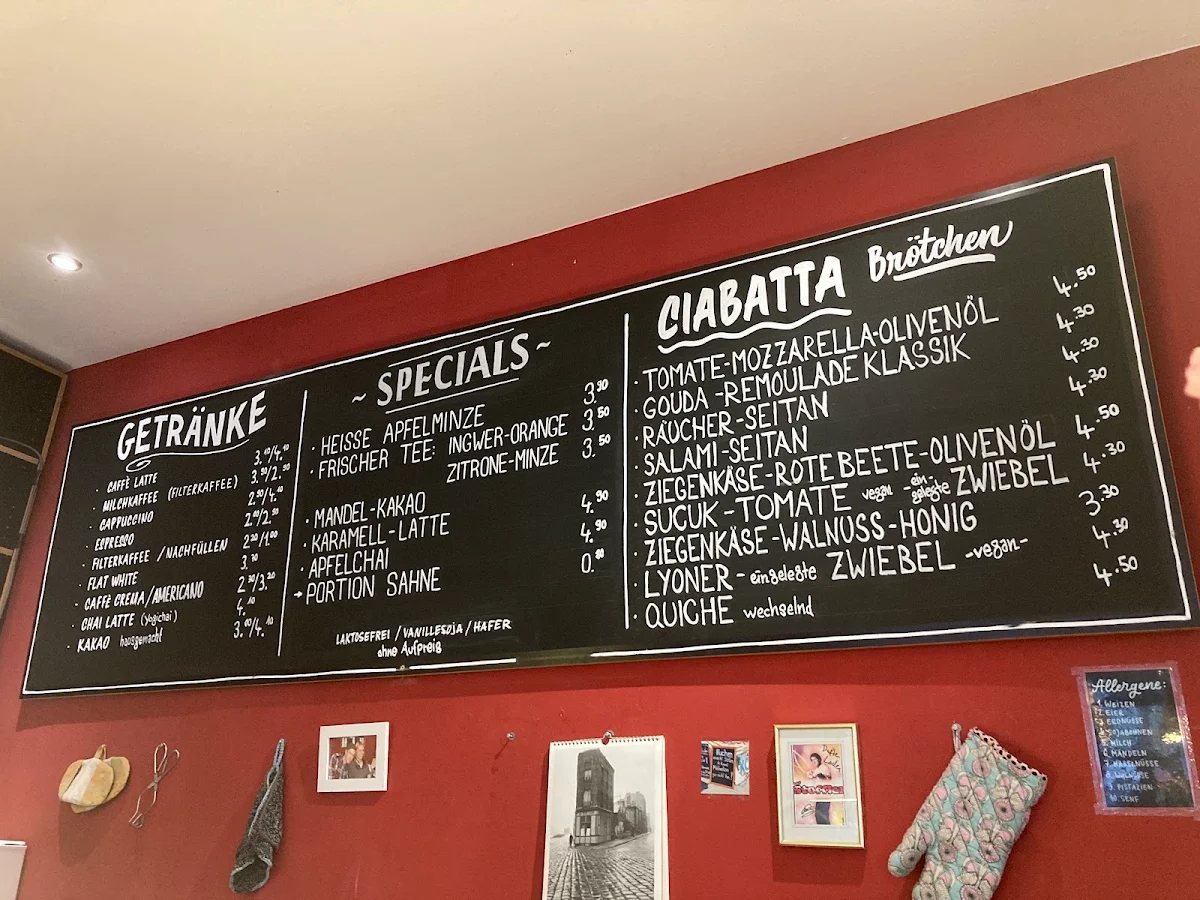 GETRÄNKE
· CAFFÈ LATTE
· MILCHKAFFEE (FILTERKAFFEE)
· CAPPUCCINO
· ESPRESSO
· FILTERKAFFEE / NACHFÜLLEN
· FLAT WHITE
· CAFFÈ CREMA / AMERICANO
· CHAI LATTE (Yogichai)
· KAKAO hausgemacht
~ SPECIALS ~
· HEISSE APFELMINZE
· FRISCHER TEE: INGWER-ORANGE 3.50
ZITRONE-MINZE 3.50
· MANDEL-KAKAO
· KARAMELL-LATTE 4.90
· APFELCHAI 4.90
→ PORTION SAHNE
LAKTOSEFREI / VANILLESOJA / HAFER
ohne Aufpreis
CIABATTA Brötchen
· TOMATE-MOZZARELLA-OLIVENÖL 4.50
· GOUDA-REMOULADE KLASSIK 4.30
· RÄUCHER-SEITAN 4.30
· SALAMI-SEITAN 4.30
· ZIEGENKÄSE-ROTE BEETE-OLIVENÖL 4.50
· SUCUK-TOMATE vegan -ein-gelegte ZWIEBEL 4.30
· ZIEGENKÄSE-WALNUSS-HONIG 3.30
· LYONER-eingelegte ZWIEBEL -vegan- 4.30
· QUICHE wechselnd 4.50
Allergene:
1. WEIZEN
2. EIER
3. ERDNÜSSE
4. SOJABOHNEN
5. MILCH
6. MANDELN
7. HASELNÜSSE
8. WALNÜSSE
9. PISTAZIEN
10. SENF